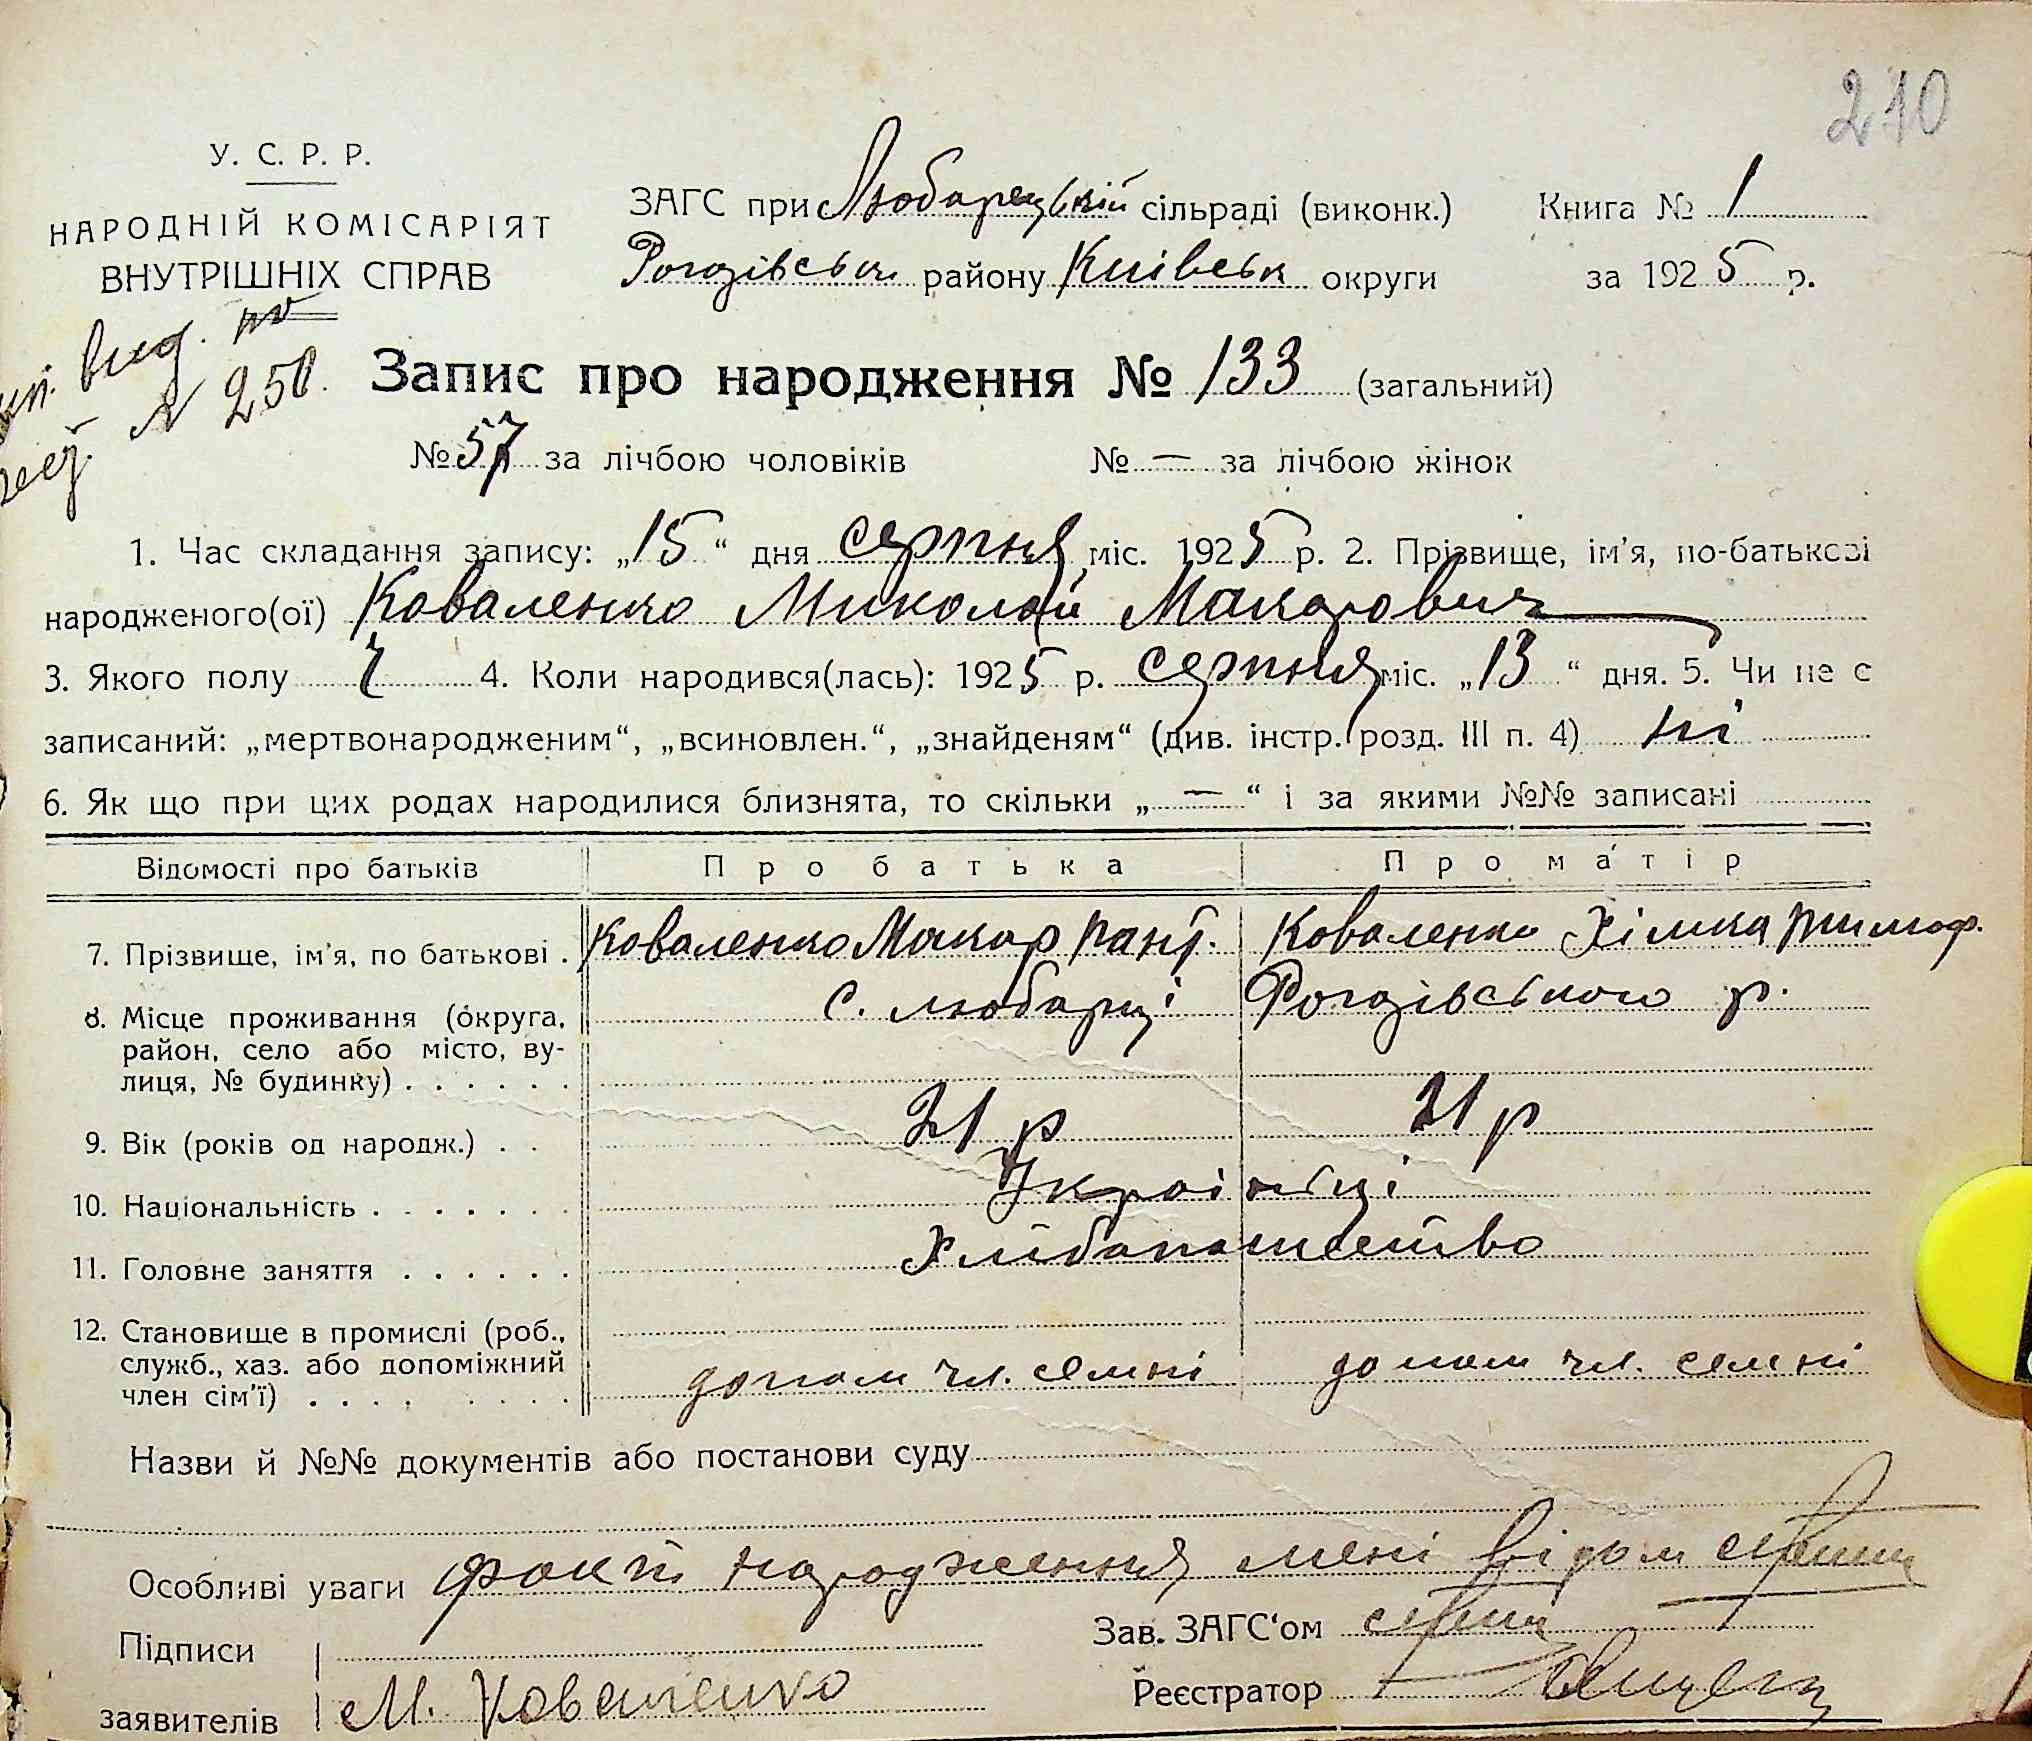 210
У. С. Р. Р.
НАРОДНІЙ КОМІСАРІЯТ
ВНУТРІШНІХ СПРАВ
ЗАГС при Любарецькій сільраді (виконк.) Книга № 1
Рогозівськ району Київськ округи за 1925 р.
вид. по
№ 250.
Запис про народження № 133 (загальний)
№ 57 за лічбою чоловіків № — за лічбою жінок
1. Час складання запису: „15“ дня серпня міс. 1925 р. 2. Прізвище, ім’я, по-батькові
народженого(ої) Коваленко Миколай Макарович
3. Якого полу ч 4. Коли народився(лась): 1925 р. серпня міс. „13“ дня. 5. Чи не є
записаний: „мертвонародженим“, „всиновлен.“, „знайденям“ (див. інстр. розд. III п. 4) ні
6. Як що при цих родах народилися близнята, то скільки „—“ і за якими №№ записані
Відомості про батьків Про батька Про матір
7. Прізвище, ім’я, по батькові . Коваленко Макар Пант. Коваленко Хімка Тимоф.
8. Місце проживання (округа, с. Любарці Рогозівського р.
район, село або місто, ву-
лиця, № будинку) . . . . . .
9. Вік (років од народж.) . . 21 р 21 р
10. Національність . . . . . . . Українці
11. Головне заняття . . . . . . Хлібопашество
12. Становище в промислі (роб.,
служб., хаз. або допоміжний допом чл. семні допом чл. семні
член сім’ї) . . . . . . . .
Назви й №№ документів або постанови суду
Особливі уваги факт народження мені відом
Підписи Зав. ЗАГС‘ом
заявителів М. Коваленко Реєстратор